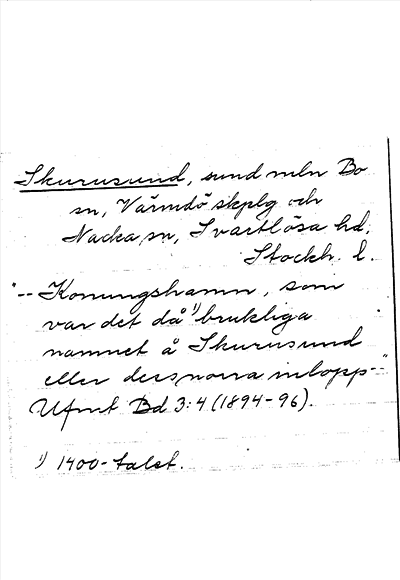 Skurusund, sund mln Bo
sn, Värmdö skplg och
Nacka sn, Svartlösa hd.
Stockh. l.
"-- Konungshamn, som
var det då 1) brukliga
namnet å Skurusund
eller dess norra inlopp--"
Ufmt Bd 3:4 (1894-96).
1) 1400-talet.